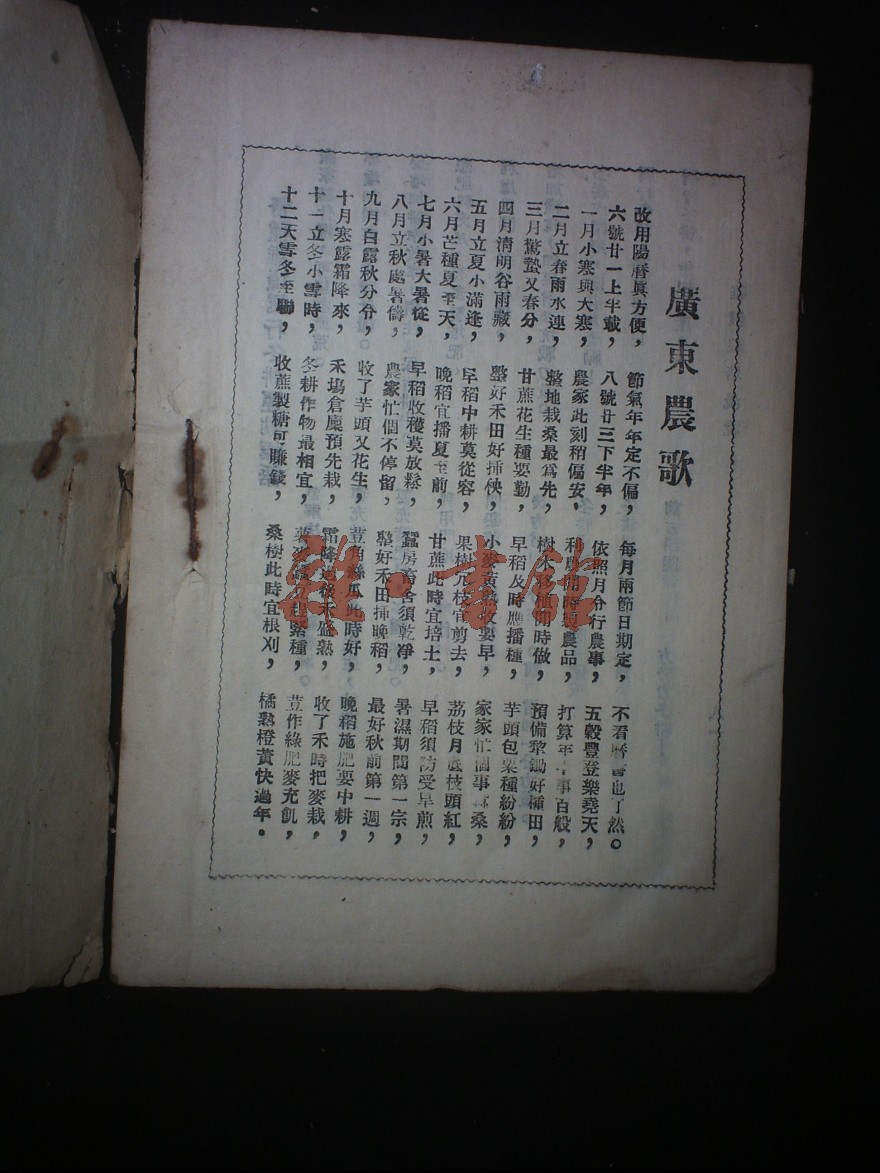 廣東農歌
改用陽曆眞方便，節氣年年定不偏，每月兩節日期定，不看曆書也了然。
六號廿一上半載，八號廿三下半年，依照月分行農事，五穀豐登樂堯天，
一月小寒與大寒，農家此刻稍偏安，利農品，打算年事百般，
二月立春雨水連，整地栽桑最爲先，樹木時做，預備犂鋤好種田，
三月驚蟄又春分，甘蔗花生種要勤，早稻及時應播種，芋頭包粟種紛紛，
四月清明谷雨藏，整好禾田好揷秧，小麥黃收要早，家家忙個事桑，
五月立夏小滿逢，早稻中耕莫從容，果樹冗枝宜剪去，荔枝月底枝頭紅，
六月芒種夏至天，晚稻宜播夏至前，甘蔗此時宜培土，早稻須防受旱煎，
七月小暑大暑從，早稻收穫莫放鬆，蠶房畜舍須乾凈，暑濕期間第一宗，
八月立秋處暑儔，農家忙個不停留，整好禾田揷晚稻，最好秋前第一週，
九月白露秋分令，收了芋頭又花生，荳角絲瓜此時好，晚稻施肥要中耕，
十月寒露霜降來，禾塲倉廩預先栽，霜降過後禾盛熟，收了禾時把麥栽，
十一立冬小雪時，冬耕作物最相宜，趕緊種，荳作綠肥麥充飢，
十二大雪冬至聯，收蔗製糖可賺錢，桑樹此時宜根刈，橘熟橙黃快過年。
雜書館